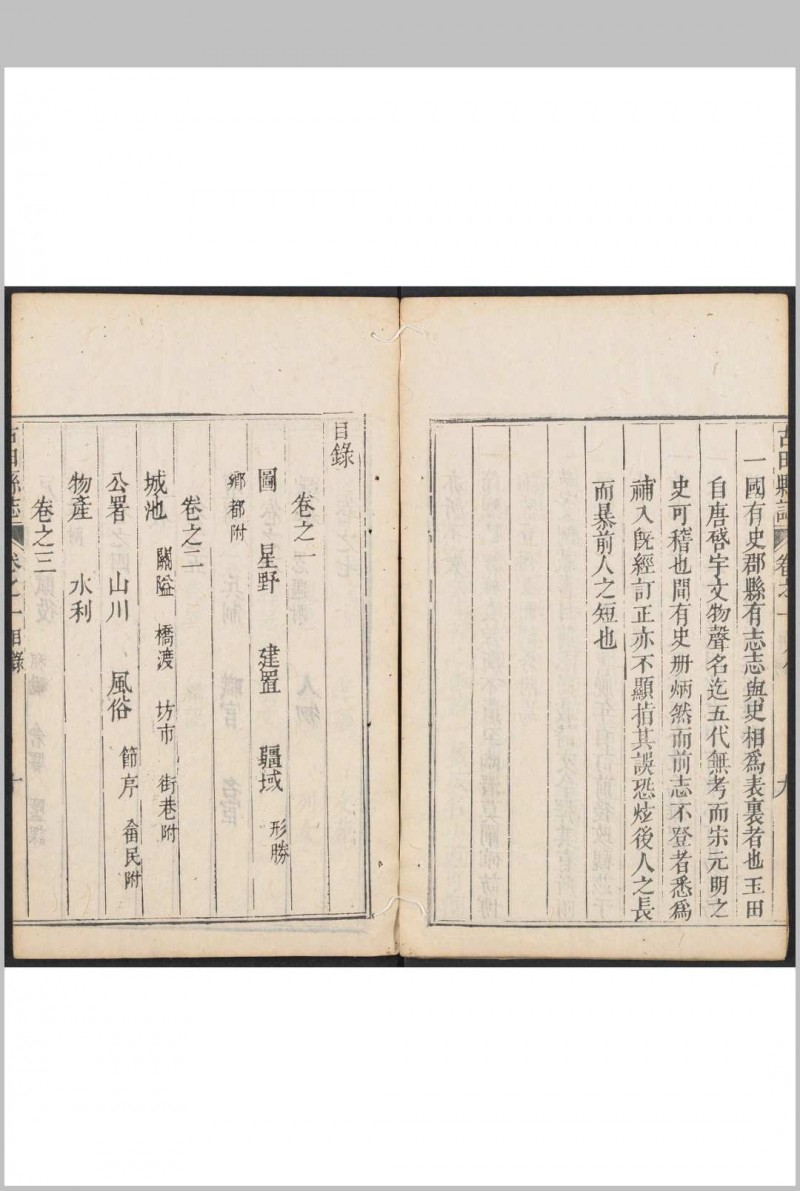 古田縣誌 卷之一 九
一國有史郡縣有志志與史相爲表裏者也玉田
自唐啓宇文物聲名迄五代無考而宋元明之
史可稽也間有史册炳然而前志不登者悉爲
補入旣經訂正亦不顯指其誤恐炫後人之長
而暴前人之短也
目錄
卷之一
圖 星野 建置 疆域 形勝
鄉都附
卷之二
城池 關隘 橋渡 坊市 街巷附
公署 山川 風俗 節序 畲民附
物產 水利
卷之三
古田縣志 卷之一目錄 十